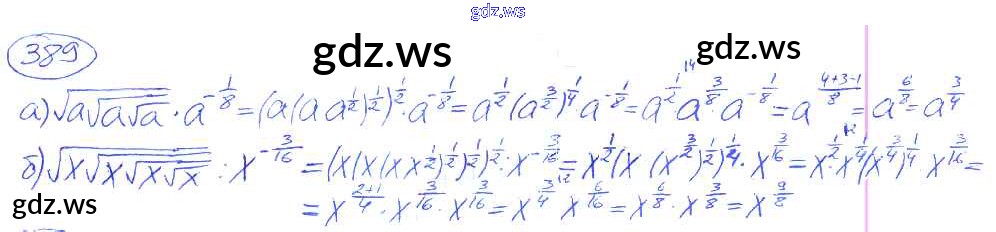 gdz.ws
389
gdz.ws gdz.ws
а) √(a√(a√a)) · a^(-1/8) = (a(a a^(1/2))^(1/2))^(1/2) · a^(-1/8) = a^(1/2)(a^(3/2))^(1/4) a^(-1/8) = a^(1/2) a^(3/8) · a^(-1/8) = a^((4+3-1)/8) = a^(6/8) = a^(3/4)
б) √(x√(x√(x√x))) : x^(-3/16) = (x(x(x x^(1/2))^(1/2))^(1/2))^(1/2) : x^(-3/16) = x^(1/2)(x (x^(3/2))^(1/2))^(1/4) · x^(3/16) = x^(1/2) · x^(1/4)(x^(3/4))^(1/4) x^(3/16) =
= x^((2+1)/4) · x^(3/16) · x^(3/16) = x^(3/4) x^(6/16) = x^(6/8) · x^(3/8) = x^(9/8)
gdz.ws